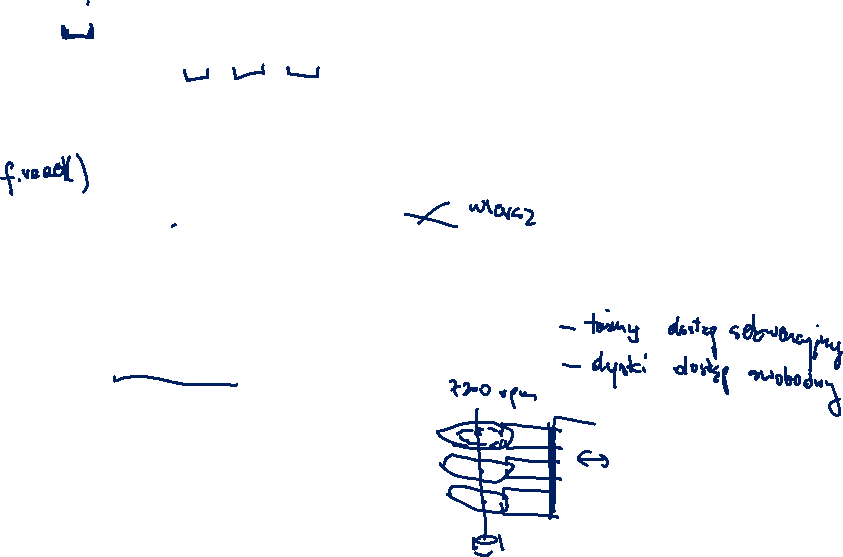 f.read()
wiersz
- taśmy dostęp sekwencyjny
- dyski dostęp swobodny
7200 rpm